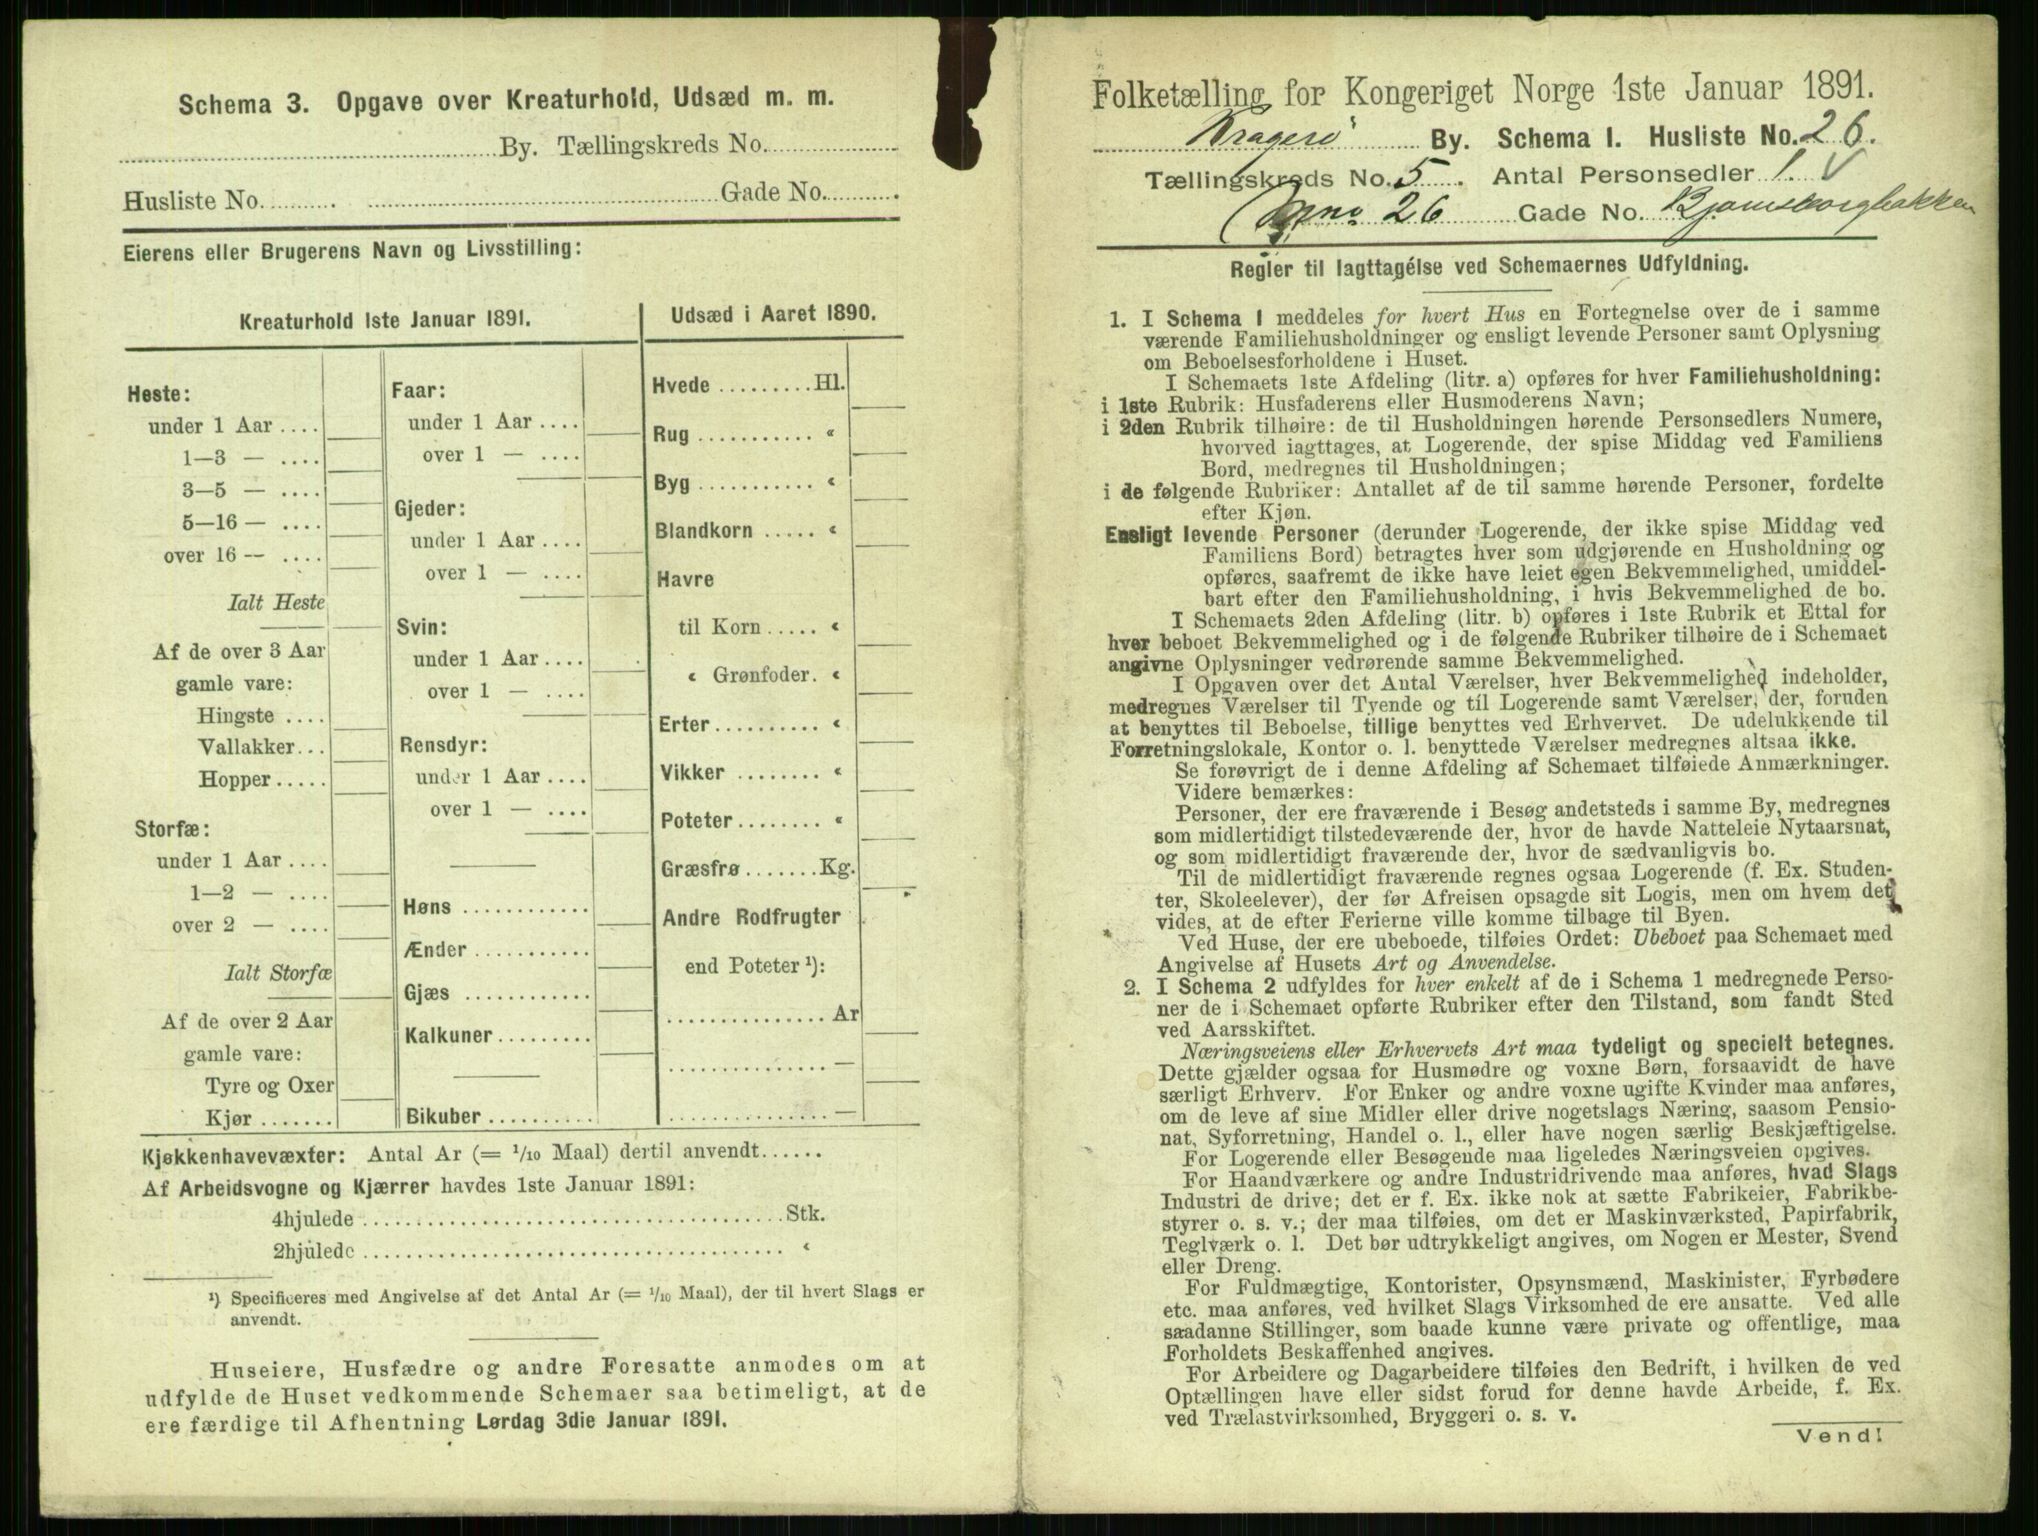 Schema 3. Opgave over Kreaturhold, Udsæd m. m.
By. Tællingskreds No.
Husliste No. Gade No.
Eierens eller Brugerens Navn og Livsstilling:
Kreaturhold 1ste Januar 1891.
Heste:
under 1 Aar ....
1—3 — ....
3—5 — ....
5—16 — ....
over 16 — ....
Ialt Heste
Af de over 3 Aar
gamle vare:
Hingste ....
Vallakker...
Hopper.....
Storfæ:
under 1 Aar ....
1—2 — ....
over 2 — ....
Ialt Storfæ
Af de over 2 Aar
gamle vare:
Tyre og Oxer
Kjør.......
Faar:
under 1 Aar ....
over 1 — ....
Gjeder:
under 1 Aar ....
over 1 — ....
Svin:
under 1 Aar ....
over 1 — ....
Rensdyr:
under 1 Aar ....
over 1 — ....
Høns ............
Ænder ...........
Gjæs ............
Kalkuner.........
Bikuber ..........
Udsæd i Aaret 1890.
Hvede .........Hl.
Rug ........... «
Byg ........... «
Blandkorn ..... «
Havre
til Korn ..... «
« Grønfoder. «
Erter .......... «
Vikker ........ «
Poteter........ «
Græsfrø .......Kg.
Andre Rodfrugter
end Poteter ¹):
............... Ar
............... —
............... —
Kjøkkenhavevæxter: Antal Ar (= 1/10 Maal) dertil anvendt......
Af Arbeidsvogne og Kjærrer havdes 1ste Januar 1891:
4hjulede ........................................Stk.
2hjulede ........................................ «
¹) Specificeres med Angivelse af det Antal Ar (= 1/10 Maal), der til hvert Slags er
anvendt.
Huseiere, Husfædre og andre Foresatte anmodes om at
udfylde de Huset vedkommende Schemaer saa betimeligt, at de
ere færdige til Afhentning Lørdag 3die Januar 1891.
Folketælling for Kongeriget Norge 1ste Januar 1891.
Kragerø By. Schema 1. Husliste No. 26.
Tællingskreds No. 5. Antal Personsedler 1.
26 Gade No. Bjørnsborgbakken
Regler til Iagttagelse ved Schemaernes Udfyldning.
1. I Schema 1 meddeles for hvert Hus en Fortegnelse over de i samme
værende Familiehusholdninger og ensligt levende Personer samt Oplysning
om Beboelsesforholdene i Huset.
I Schemaets 1ste Afdeling (litr. a) opføres for hver Familiehusholdning:
i 1ste Rubrik: Husfaderens eller Husmoderens Navn;
i 2den Rubrik tilhøire: de til Husholdningen hørende Personsedlers Numere,
hvorved iagttages, at Logerende, der spise Middag ved Familiens
Bord, medregnes til Husholdningen;
i de følgende Rubriker: Antallet af de til samme hørende Personer, fordelte
efter Kjøn.
Ensligt levende Personer (derunder Logerende, der ikke spise Middag ved
Familiens Bord) betragtes hver som udgjørende en Husholdning og
opføres, saafremt de ikke have leiet egen Bekvemmelighed, umiddel-
bart efter den Familiehusholdning, i hvis Bekvemmelighed de bo.
I Schemaets 2den Afdeling (litr. b) opføres i 1ste Rubrik et Ettal for
hver beboet Bekvemmelighed og i de følgende Rubriker tilhøire de i Schemaet
angivne Oplysninger vedrørende samme Bekvemmelighed.
I Opgaven over det Antal Værelser, hver Bekvemmelighed indeholder,
medregnes Værelser til Tyende og til Logerende samt Værelser, der, foruden
at benyttes til Beboelse, tillige benyttes ved Erhvervet. De udelukkende til
Forretningslokale, Kontor o. l. benyttede Værelser medregnes altsaa ikke.
Se forøvrigt de i denne Afdeling af Schemaet tilføiede Anmærkninger.
Videre bemærkes:
Personer, der ere fraværende i Besøg andetsteds i samme By, medregnes
som midlertidigt tilstedeværende der, hvor de havde Natteleie Nytaarsnat,
og som midlertidigt fraværende der, hvor de sædvanligvis bo.
Til de midlertidigt fraværende regnes ogsaa Logerende (f. Ex. Studen-
ter, Skoleelever), der før Afreisen opsagde sit Logis, men om hvem det
vides, at de efter Ferierne ville komme tilbage til Byen.
Ved Huse, der ere ubeboede, tilføies Ordet: Ubeboet paa Schemaet med
Angivelse af Husets Art og Anvendelse.
2. I Schema 2 udfyldes for hver enkelt af de i Schema 1 medregnede Perso-
ner de i Schemaet opførte Rubriker efter den Tilstand, som fandt Sted
ved Aarsskiftet.
Næringsveiens eller Erhvervets Art maa tydeligt og specielt betegnes.
Dette gjælder ogsaa for Husmødre og voxne Børn, forsaavidt de have
særligt Erhverv. For Enker og andre voxne ugifte Kvinder maa anføres,
om de leve af sine Midler eller drive nogetslags Næring, saasom Pensio-
nat, Syforretning, Handel o. l., eller have nogen særlig Beskjæftigelse.
For Logerende eller Besøgende maa ligeledes Næringsveien opgives.
For Haandværkere og andre Industridrivende maa anføres, hvad Slags
Industri de drive; det er f. Ex. ikke nok at sætte Fabrikeier, Fabrikbe-
styrer o. s. v.; der maa tilføies, om det er Maskinværksted, Papirfabrik,
Teglværk o. l. Det bør udtrykkeligt angives, om Nogen er Mester, Svend
eller Dreng.
For Fuldmægtige, Kontorister, Opsynsmænd, Maskinister, Fyrbødere
etc. maa anføres, ved hvilket Slags Virksomhed de ere ansatte. Ved alle
saadanne Stillinger, som baade kunne være private og offentlige, maa
Forholdets Beskaffenhed angives.
For Arbeidere og Dagarbeidere tilføies den Bedrift, i hvilken de ved
Optællingen have eller sidst forud for denne havde Arbeide, f. Ex.
ved Trælastvirksomhed, Bryggeri o. s. v.
Vend!